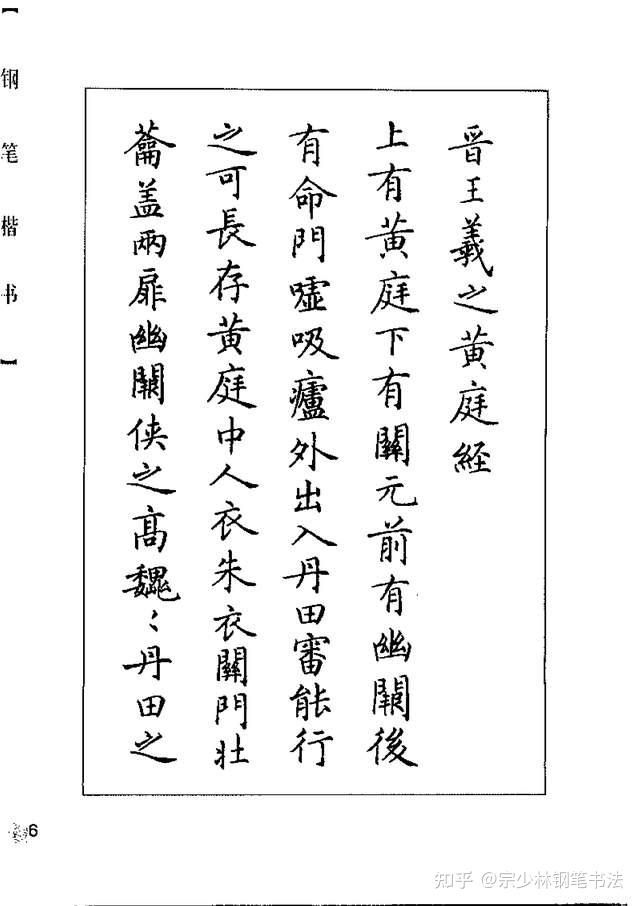 【钢笔楷书】
晋王羲之黄庭経
上有黄庭下有關元前有幽闕後
有命門嘘吸廬外出入丹田審能行
之可長存黄庭中人衣朱衣關門壯
蘥盖兩扉幽闕侠之高魏〻丹田之
6
知乎 @宗少林钢笔书法